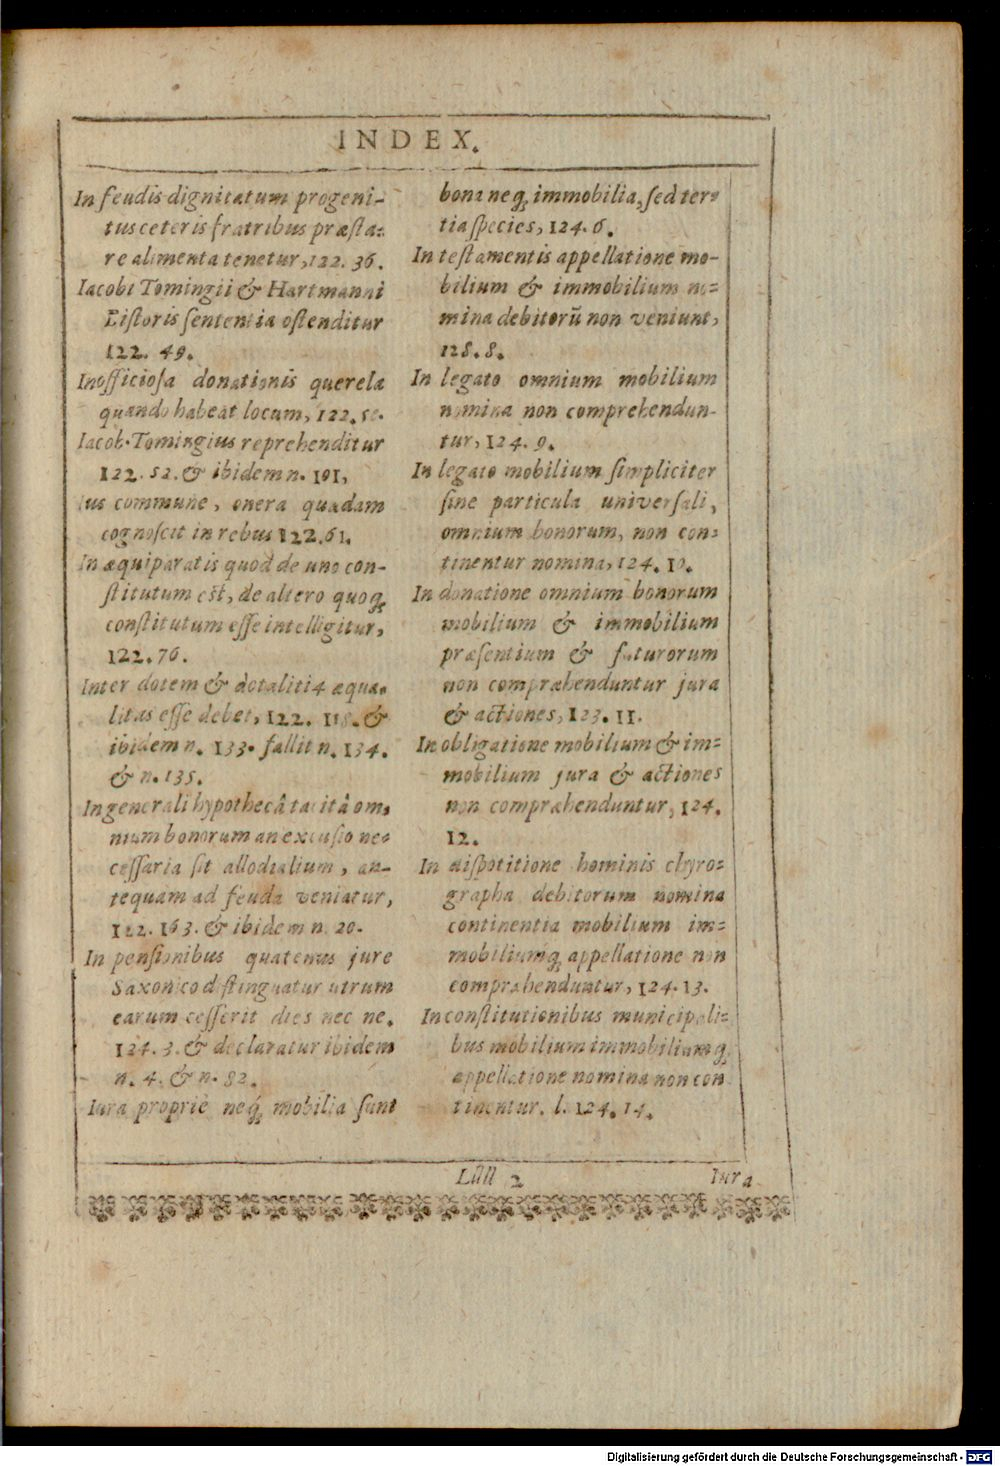 INDEX.
In feudis dignitatum progeni-
tus ceteris fratribus præsta-
re alimenta tenetur, 122. 36.
Iacobi Tomingii & Hartmanni
Pistoris sententia ostenditur
122. 49.
Inofficiosa donationis querela
quando habeat locum, 122.
Iacob. Tomingius reprehenditur
122. 52. & ibidem n. 101,
Ius commune, onera quædam
cognoscit in rebus 122. 61.
In æquiparatis quod de uno con-
stitutum est, de altero quoq́;
constitutum esse intelligitur,
122. 76.
Inter dotem & dotalitia æqua-
litas esse debet, 122. 118. &
ibidem n. 133. fallit n. 134.
& n. 135.
In generali hypothecâ tacitâ om-
nium bonorum an excussio ne-
cessaria sit allodialium, an-
tequam ad feuda veniatur,
122. 163. & ibidem n. 20.
In pensionibus quatenus jure
Saxonico distinguatur utrum
earum cesserit dies nec ne.
124. 3. & declaratur ibidem
n. 4. & n. 82.
Iura propriè neq́; mobilia sunt
bona neq́; immobilia, sed ter-
tia species, 124. 6.
In testamentis appellatione mo-
bilium & immobilium no-
mina debitorũ non veniunt,
128. 8.
In legato omnium mobilium
nomina non comprehendun-
tur, 124. 9.
In legato mobilium simpliciter
sine particula universali,
omnium bonorum, non con-
tinentur nomina, 124. 10.
In donatione omnium bonorum
mobilium & immobilium
præsentium & futurorum
non compræhenduntur jura
& actiones, 123. 11.
In obligatione mobilium & im-
mobilium jura & actiones
non compræhenduntur, 124.
12.
In dispotitione hominis chyro-
grapha debitorum nomina
continentia mobilium im-
mobiliumq́; appellatione non
compræhenduntur, 124. 13.
In constitutionibus municipali-
bus mobilium immobiliumq́;
appellatione nomina non con
tinentur. l. 124. 14.
Llll 2
Iura
Digitalisierung gefördert durch die Deutsche Forschungsgemeinschaft - DFG